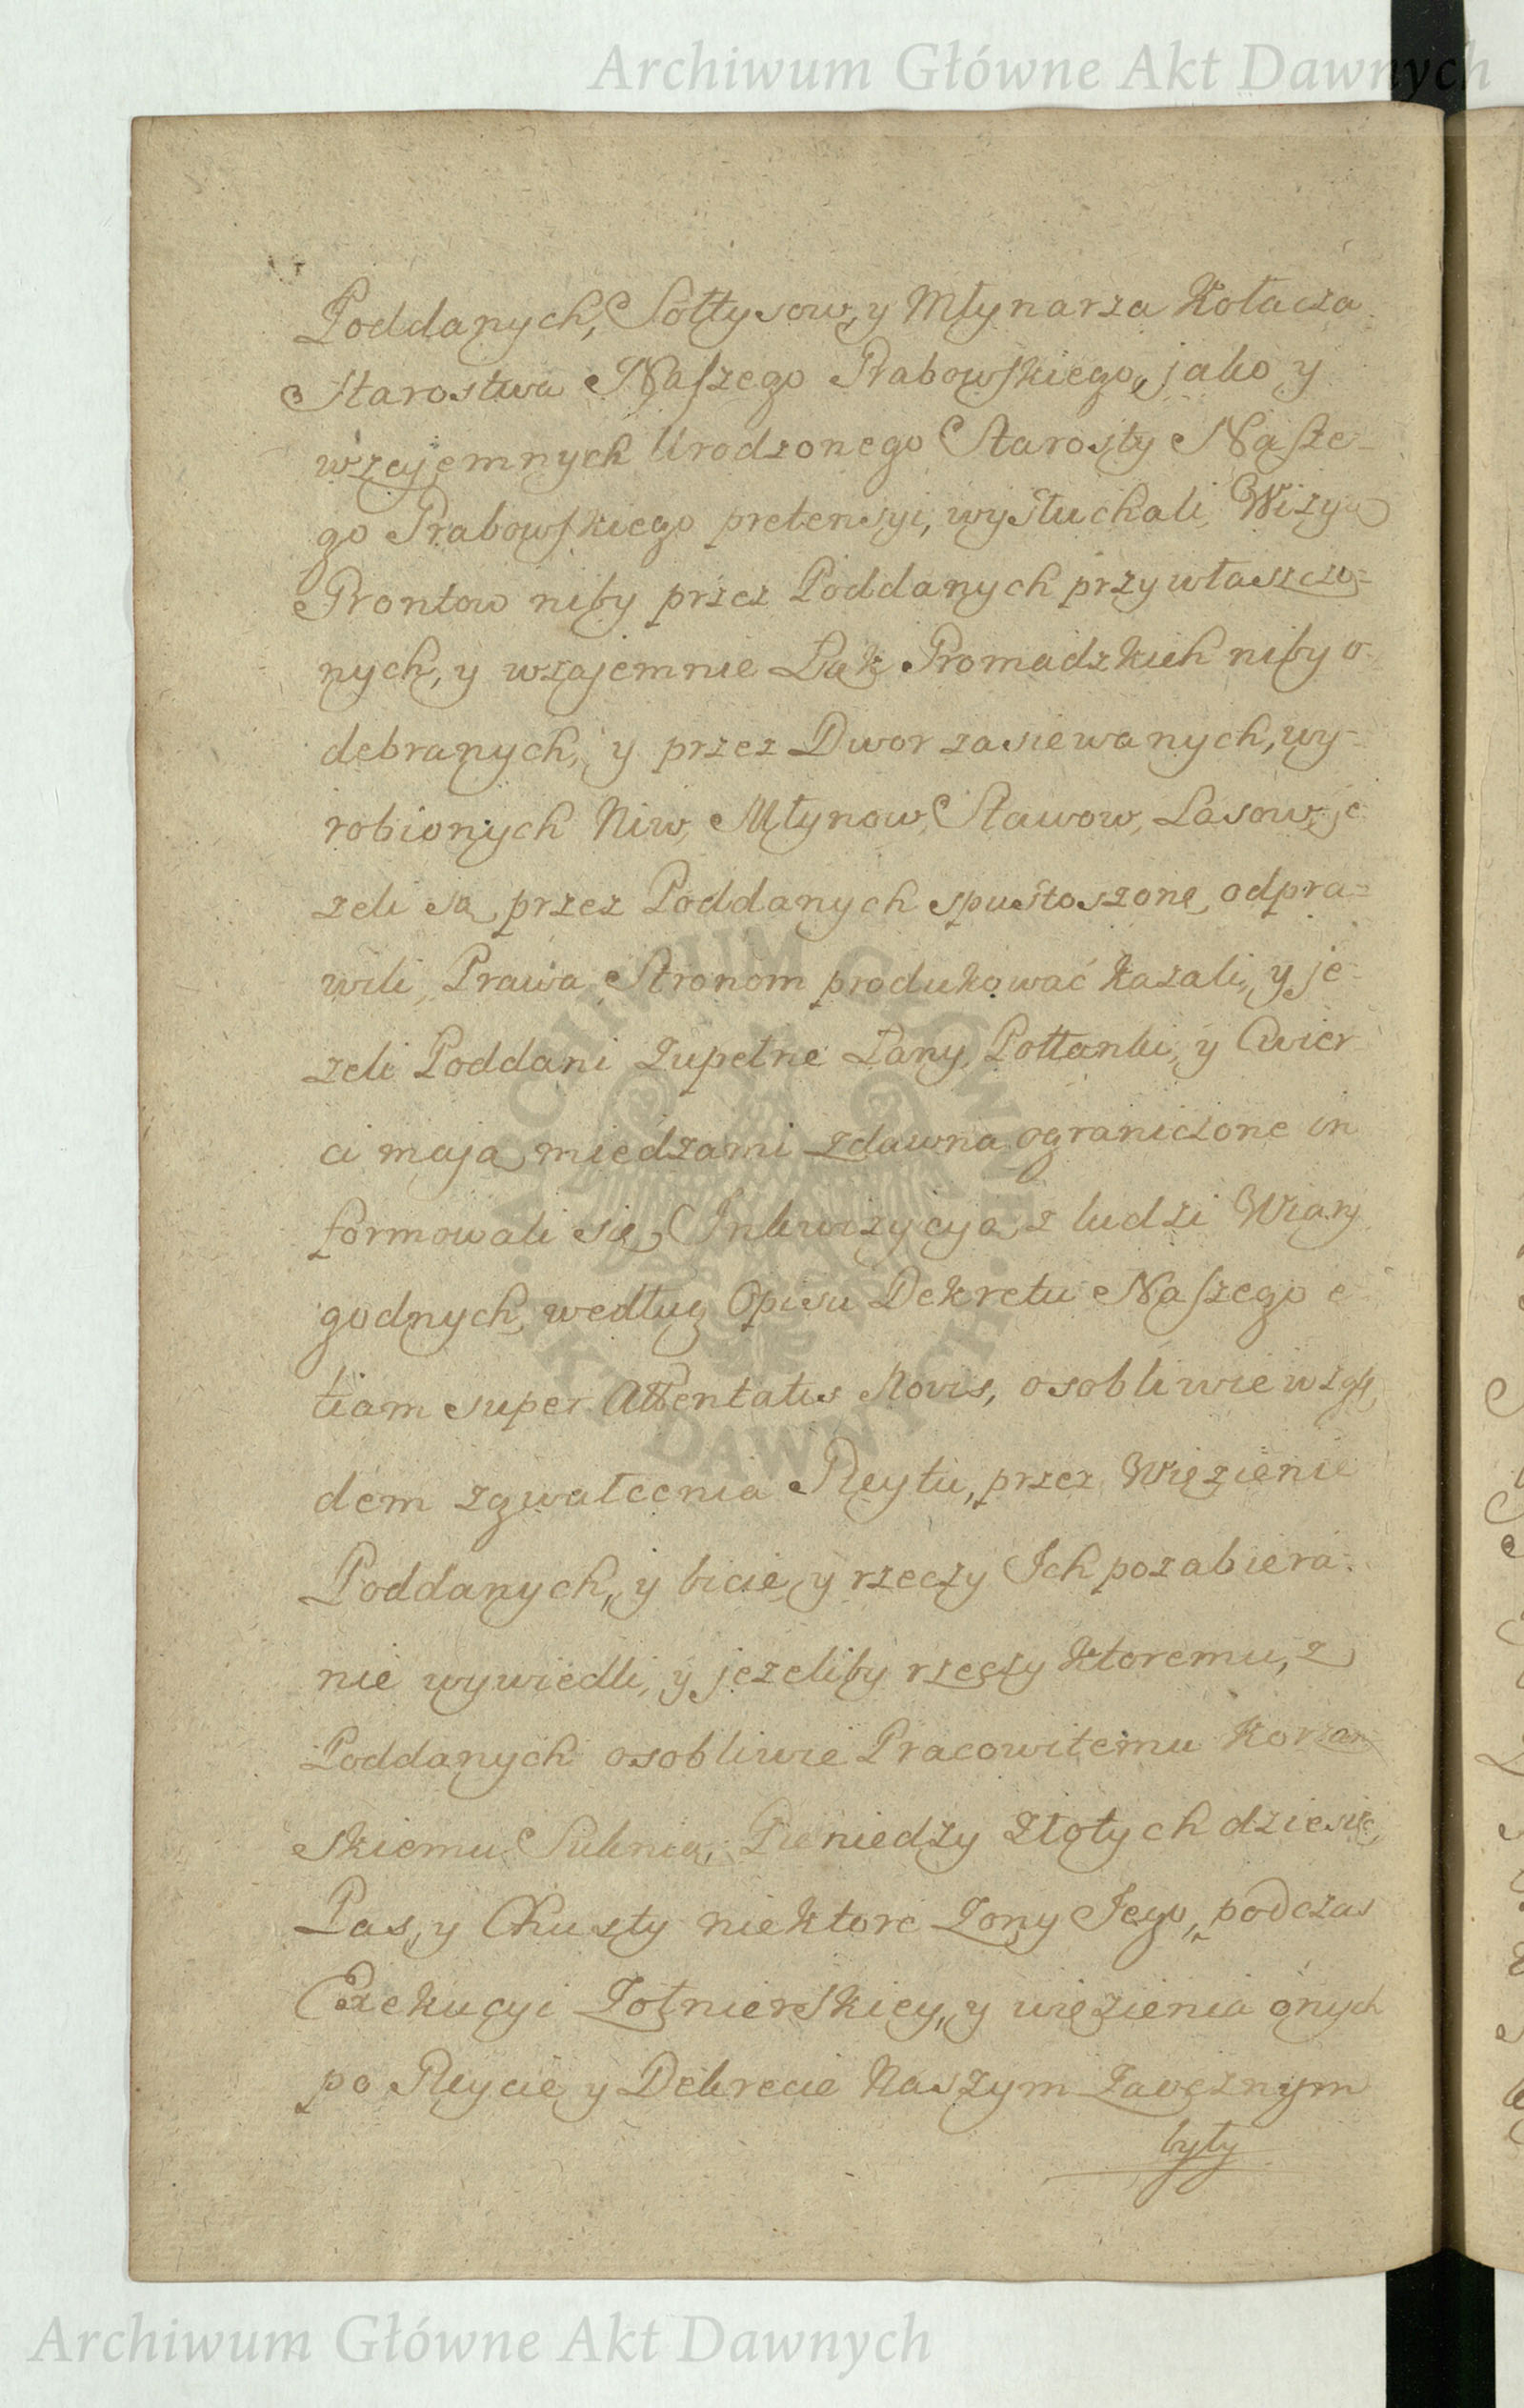 Archiwum Główne Akt Dawnych
Poddanych, Sołtysow, y Młynarza Kołacza
Starostwa Naszego Grabowskiego, jako y
wzajemnych Urodzonego Starosty Nasze-
go Grabowskiego pretensyi, wysłuchali, Wizyą
Grontow niby przez Poddanych przywłaszczo-
nych, y wzajemnie Łąk Gromadzkich niby o-
debranych, y przez Dwor zasiewanych, wy-
robionych Niw, Młynow, Stawow, Lasow, je
zeli są przez Poddanych spustoszone, odpra-
wili, Prawa Stronom produkować kazali, y je-
zeli Poddani Zupełne Łany, Połłanki, y Cwier
ci mają miedzami zdawna ograniczone in
formowali się, Inkwizycyą z ludzi Wiary
godnych, według Opisu Dekretu Naszego e-
tiam super Attentatis Novis, osobliwie wzglę
dem zgwałcenia Gleytu, przez Więzienie
Poddanych, y bicie, y rzeczy Ich pozabiera-
nie wywiedli, y jezeliby rzeczy ktoremu, z
Poddanych osobliwie Pracowitemu
skiemu Suknia, Pieniedzy złotych dziesięć,
Pas, y Chusty niektore Zony Jego, podczas
Exekucyi Zołnierskiey, y więzienia onych
po Gleycie, y Dekrecie Naszym Zaręcznym
były
ARCHIWUM GŁÓWNE · AKT DAWNYCH ·
Archiwum Główne Akt Dawnych